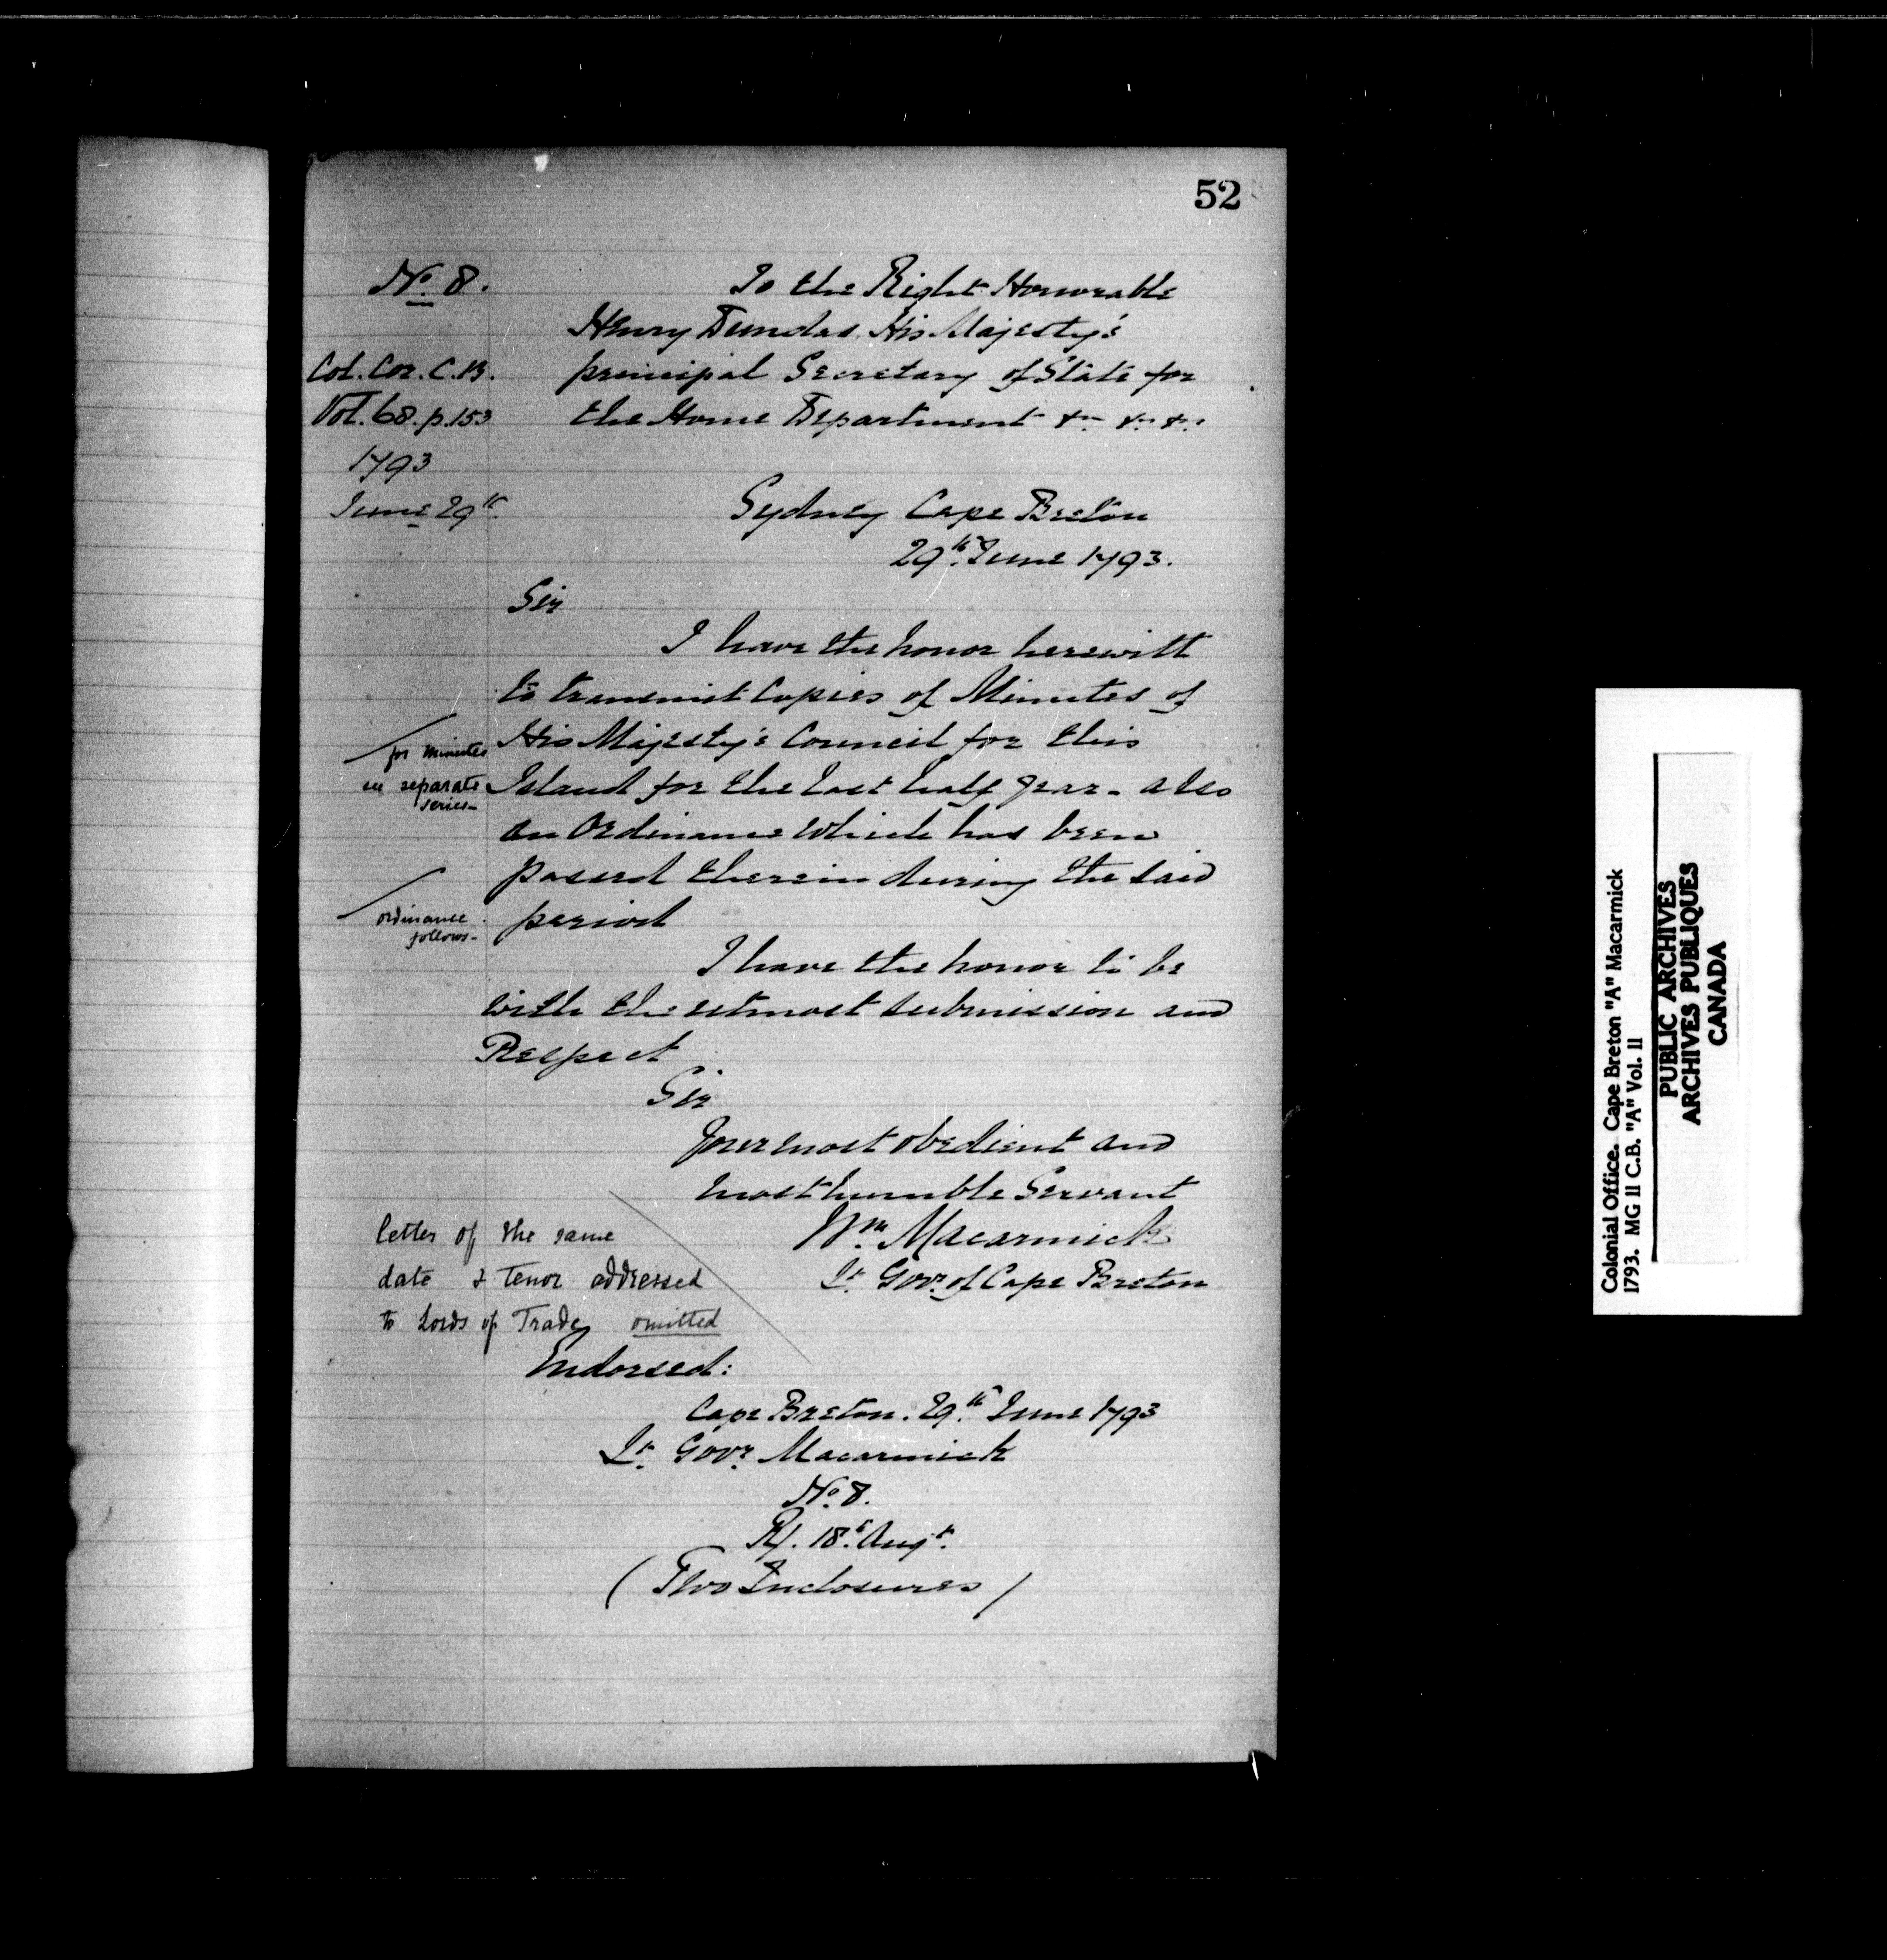 52
No. 8.
To the Right Honorable
Henry Dundas, His Majesty's
principal Secretary of State for
the Home Department &c. &c. &c.
Col. Cor. C.B.
Vol. 68. p. 153
1793
June 29th.
Sydney Cape Breton
29th. June 1793.
Sir
I have the honor herewith
to transmit Copies of Minutes of
His Majesty's Council for this
Island for the last half year - also
an Ordinance which has been
passed therein during the said
period
for minutes
see separate
series -
ordinance
follows -
I have the honor to be
with the utmost submission and
Respect
Sir
Your most obedient and
most humble Servant
Wm. Macarmick
Lt. Govr. of Cape Breton
letter of the same
date & tenor addressed
to Lords of Trade, omitted
Endorsed:
Cape Breton. 29th. June 1793
Lt. Govr. Macarmick
No. 8.
R/. 18th. Augt.
(Two Inclosures)
Colonial Office. Cape Breton "A" Macarmick
1793. MG 11 C.B. "A" Vol. 11
PUBLIC ARCHIVES
ARCHIVES PUBLIQUES
CANADA